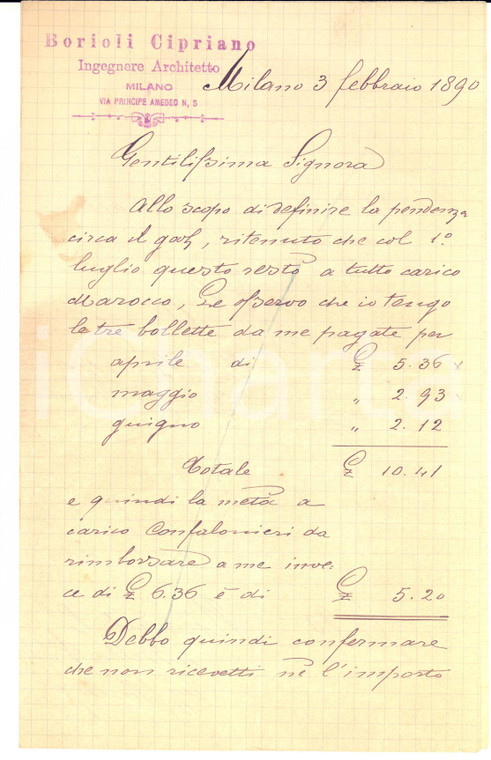 Borioli Cipriano
Ingegnere Architetto
MILANO
VIA PRINCIPE AMEDEO N, 5
Milano 3 febbraio 1890
Gentilissima Signora
Allo scopo di definire la pendenza
circa il gaz, ritenuto che col 1º
luglio questo restò a tutto carico
Marocco, Le osservo che io tengo
le tre bollette da me pagate per
aprile di £ 5.36
maggio „ 2.93
giugno „ 2.12
Totale £ 10.41
e quindi la metà a
carico Confalonieri da
rimborsare a me inve
ce di £ 6.36 è di £ 5.20
Debbo quindi confermare
che non ricevetti nè l'importo